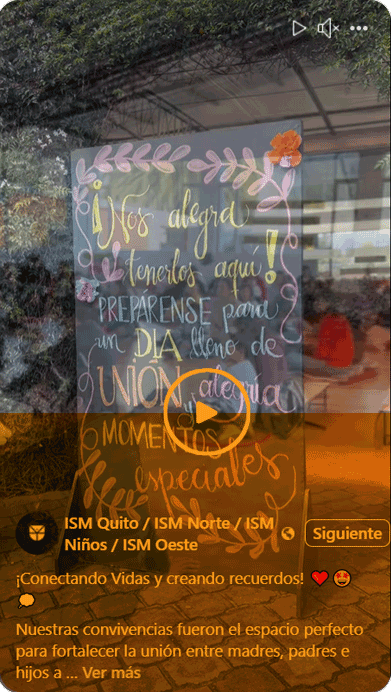 ¡Nos alegra
tenerlos aquí!
PREPARENSE para
un DIA lleno de
UNIÓN, alegría
y
MOMENTOS
especiales
ISM Quito / ISM Norte / ISM
Niños / ISM Oeste
Siguiente
¡Conectando Vidas y creando recuerdos! ❤️ 🤩
💭
Nuestras convivencias fueron el espacio perfecto
para fortalecer la unión entre madres, padres e
hijos a ... Ver más